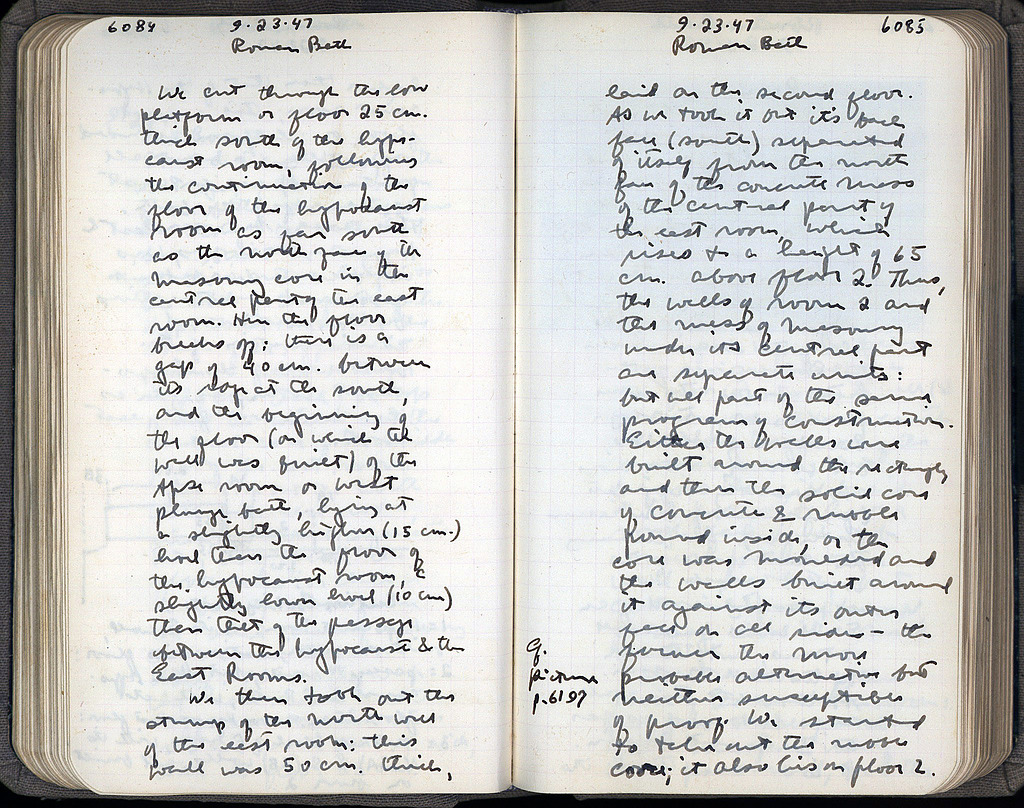 6084 9.23.47
Roman Bath
We cut through the low
platform or floor 25 cm.
thick south of the hypo-
caust room, following
the continuation of the
floor of the hypocaust
room as far south
as the north face of the
masonry core in the
central part of the east
room. Here the floor
breaks off: there is a
gap of 40 cm. between
its edge at the south,
and the beginning of
the floor (on which the
wall was built) of the
Apse room or west
plunge bath, lying at
a slightly higher (15 cm.)
level than the floor of
the hypocaust room, &
slightly lower level (10 cm)
than that of the passage
between the hypocaust & the
East Rooms.
We then took out the
stump of the north wall
of the east room: this
wall was 50 cm. thick,
9.23.47 6085
Roman Bath
laid on the second floor.
As we took it out it's back
face (south) separated
of itself from the north
face of the concrete mass
of the central part of
the east room, which
rises to a height of 65
cm. above floor 2. Thus,
the walls of room 2 and
the mass of masonry
under its central part
are separate units:
but all part of the same
program of construction.
Either the walls were
built around the rectangle
and then the solid core
of concrete & rubble
poured inside, or the
core was moulded and
the walls built around
it against its outer
face on all sides — the
former the more
probable alternative but
neither susceptible
of proof. We started
to take out the rubble
core; it also lies on floor 2.
cf.
picture
p. 6197